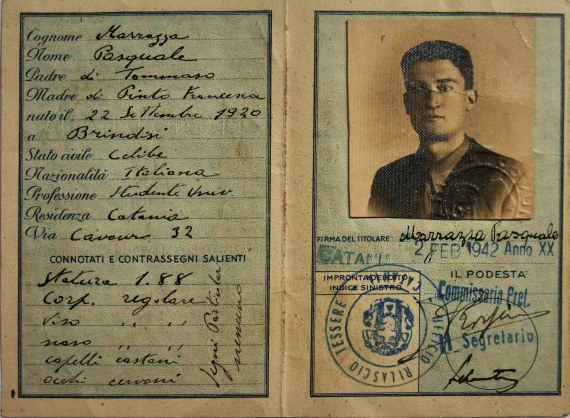 Cognome Marrazza
Nome Pasquale
Padre di Tommaso
Madre di Pinto Francesca
nato il, 22 Settembre 1920
a Brindisi
Stato civile Celibe
Nazionalità Italiana
Professione Studente Univ
Residenza Catania
Via Cavour 32
CONNOTATI E CONTRASSEGNI SALIENTI
Statura 1.88
Corp. regolare
viso " "
naso " "
capelli castani
occhi
Segni Particolari
nessuno
FIRMA DEL TITOLARE Marrazza Pasquale
CATANIA 2 FEB 1942 Anno XX
IMPRONTA DEL DITO
INDICE SINISTRO
IL PODESTÀ
Commissario Pref.
Il Segretario
UFFICIO RILASCIO TESSERE